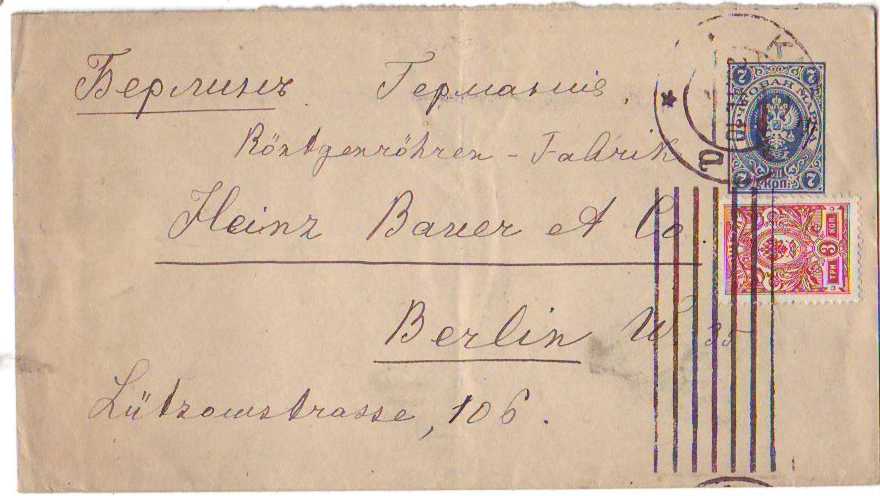 Берлинъ Германія.
Röntgenröhren - Fabrik
Heinz Bauer et Co.
Berlin W. 35
Lützowstrasse, 106.
7 7
ПОЧТОВАЯ МАРКА
7 КОП. 7
ТРИ 3 КОП.